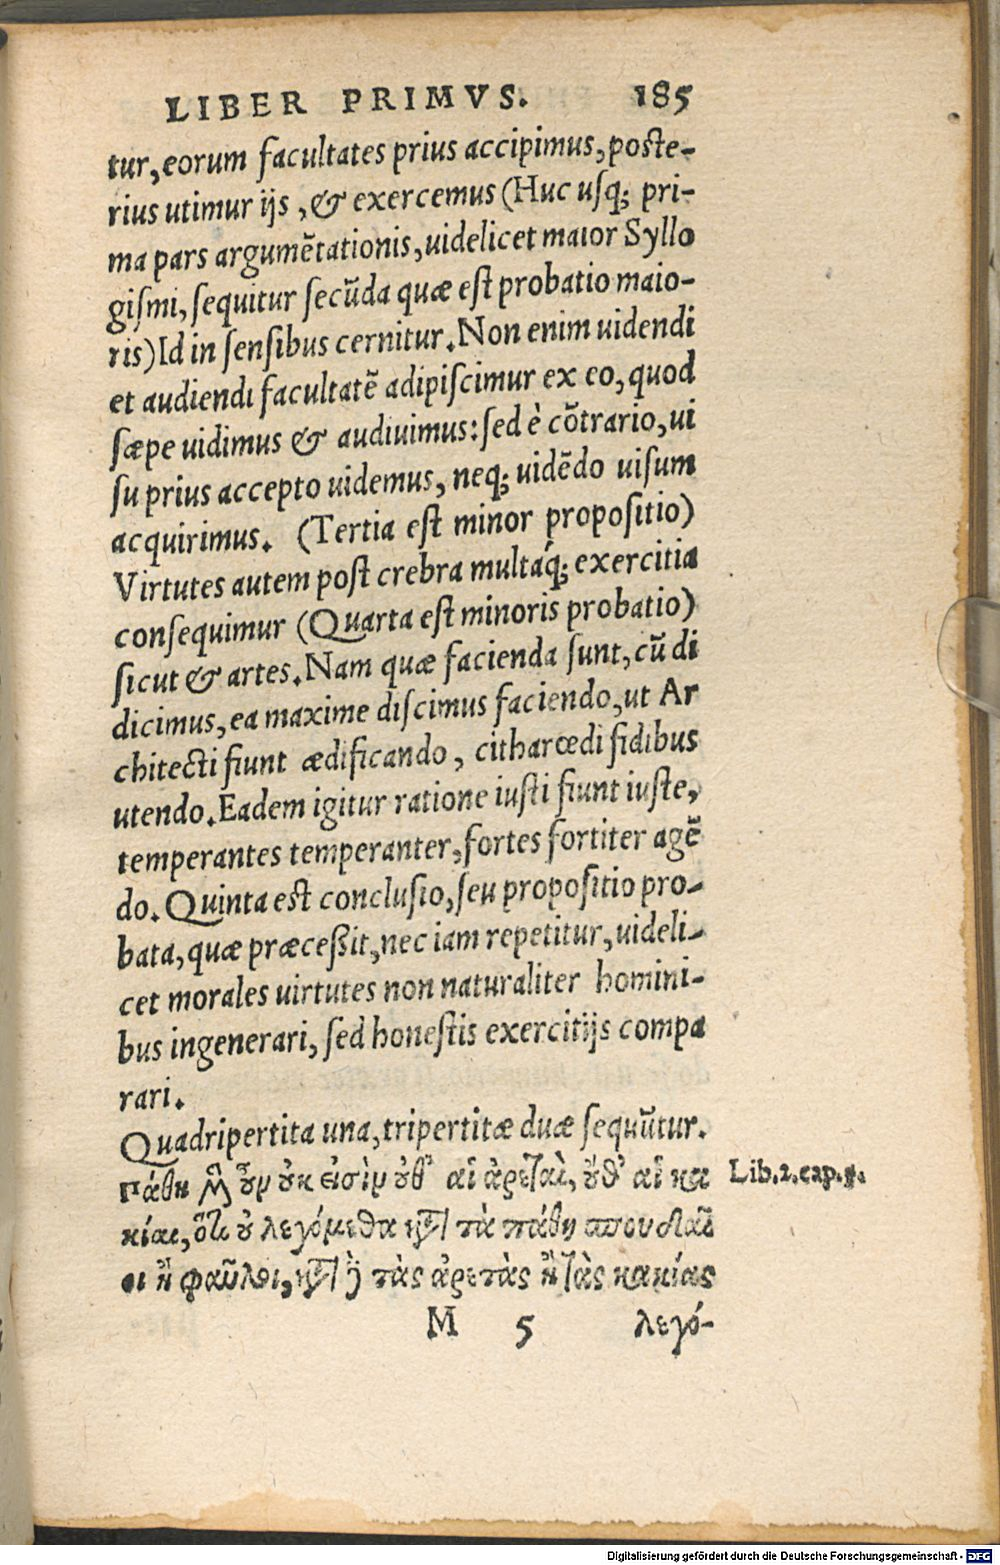 LIBER PRIMVS. 185
tur, eorum facultates prius accipimus, poste-
rius utimur ijs, & exercemus (Huc usq; pri-
ma pars argumẽtationis, uidelicet maior Syllo
gismi, sequitur secũda quæ est probatio maio-
ris) Id in sensibus cernitur. Non enim uidendi
et audiendi facultatẽ adipiscimur ex eo, quod
sæpe uidimus & audiuimus: sed è cõtrario, ui
su prius accepto uidemus, neq; uidẽdo uisum
acquirimus. (Tertia est minor propositio)
Virtutes autem post crebra multaq́; exercitia
consequimur (Quarta est minoris probatio)
sicut & artes. Nam quæ facienda sunt, cũ di
dicimus, ea maxime discimus faciendo, ut Ar
chitecti fiunt ædificando, citharœdi fidibus
utendo. Eadem igitur ratione iusti fiunt iuste,
temperantes temperanter, fortes fortiter agẽ
do. Quinta est conclusio, seu propositio pro-
bata, quæ præceßit, nec iam repetitur, uideli-
cet morales uirtutes non naturaliter homini-
bus ingenerari, sed honestis exercitijs compa
rari.
Quadripertita una, tripertitæ duæ sequũtur.
πάθη μὲν οὖν οὐκ εἰσὶν οὐθ᾽ αἱ ἀρεταὶ, οὔθ᾽ αἱ κα
Lib. 2. cap.
κίαι, ὅτι οὐ λεγόμεθα κατὰ τὰ πάθη σπουδαῖ
οι ἢ φαῦλοι, κατὰ δὲ τὰς ἀρετὰς ἢ τὰς κακίας
M 5 λεγό-
Digitalisierung gefördert durch die Deutsche Forschungsgemeinschaft - DFG